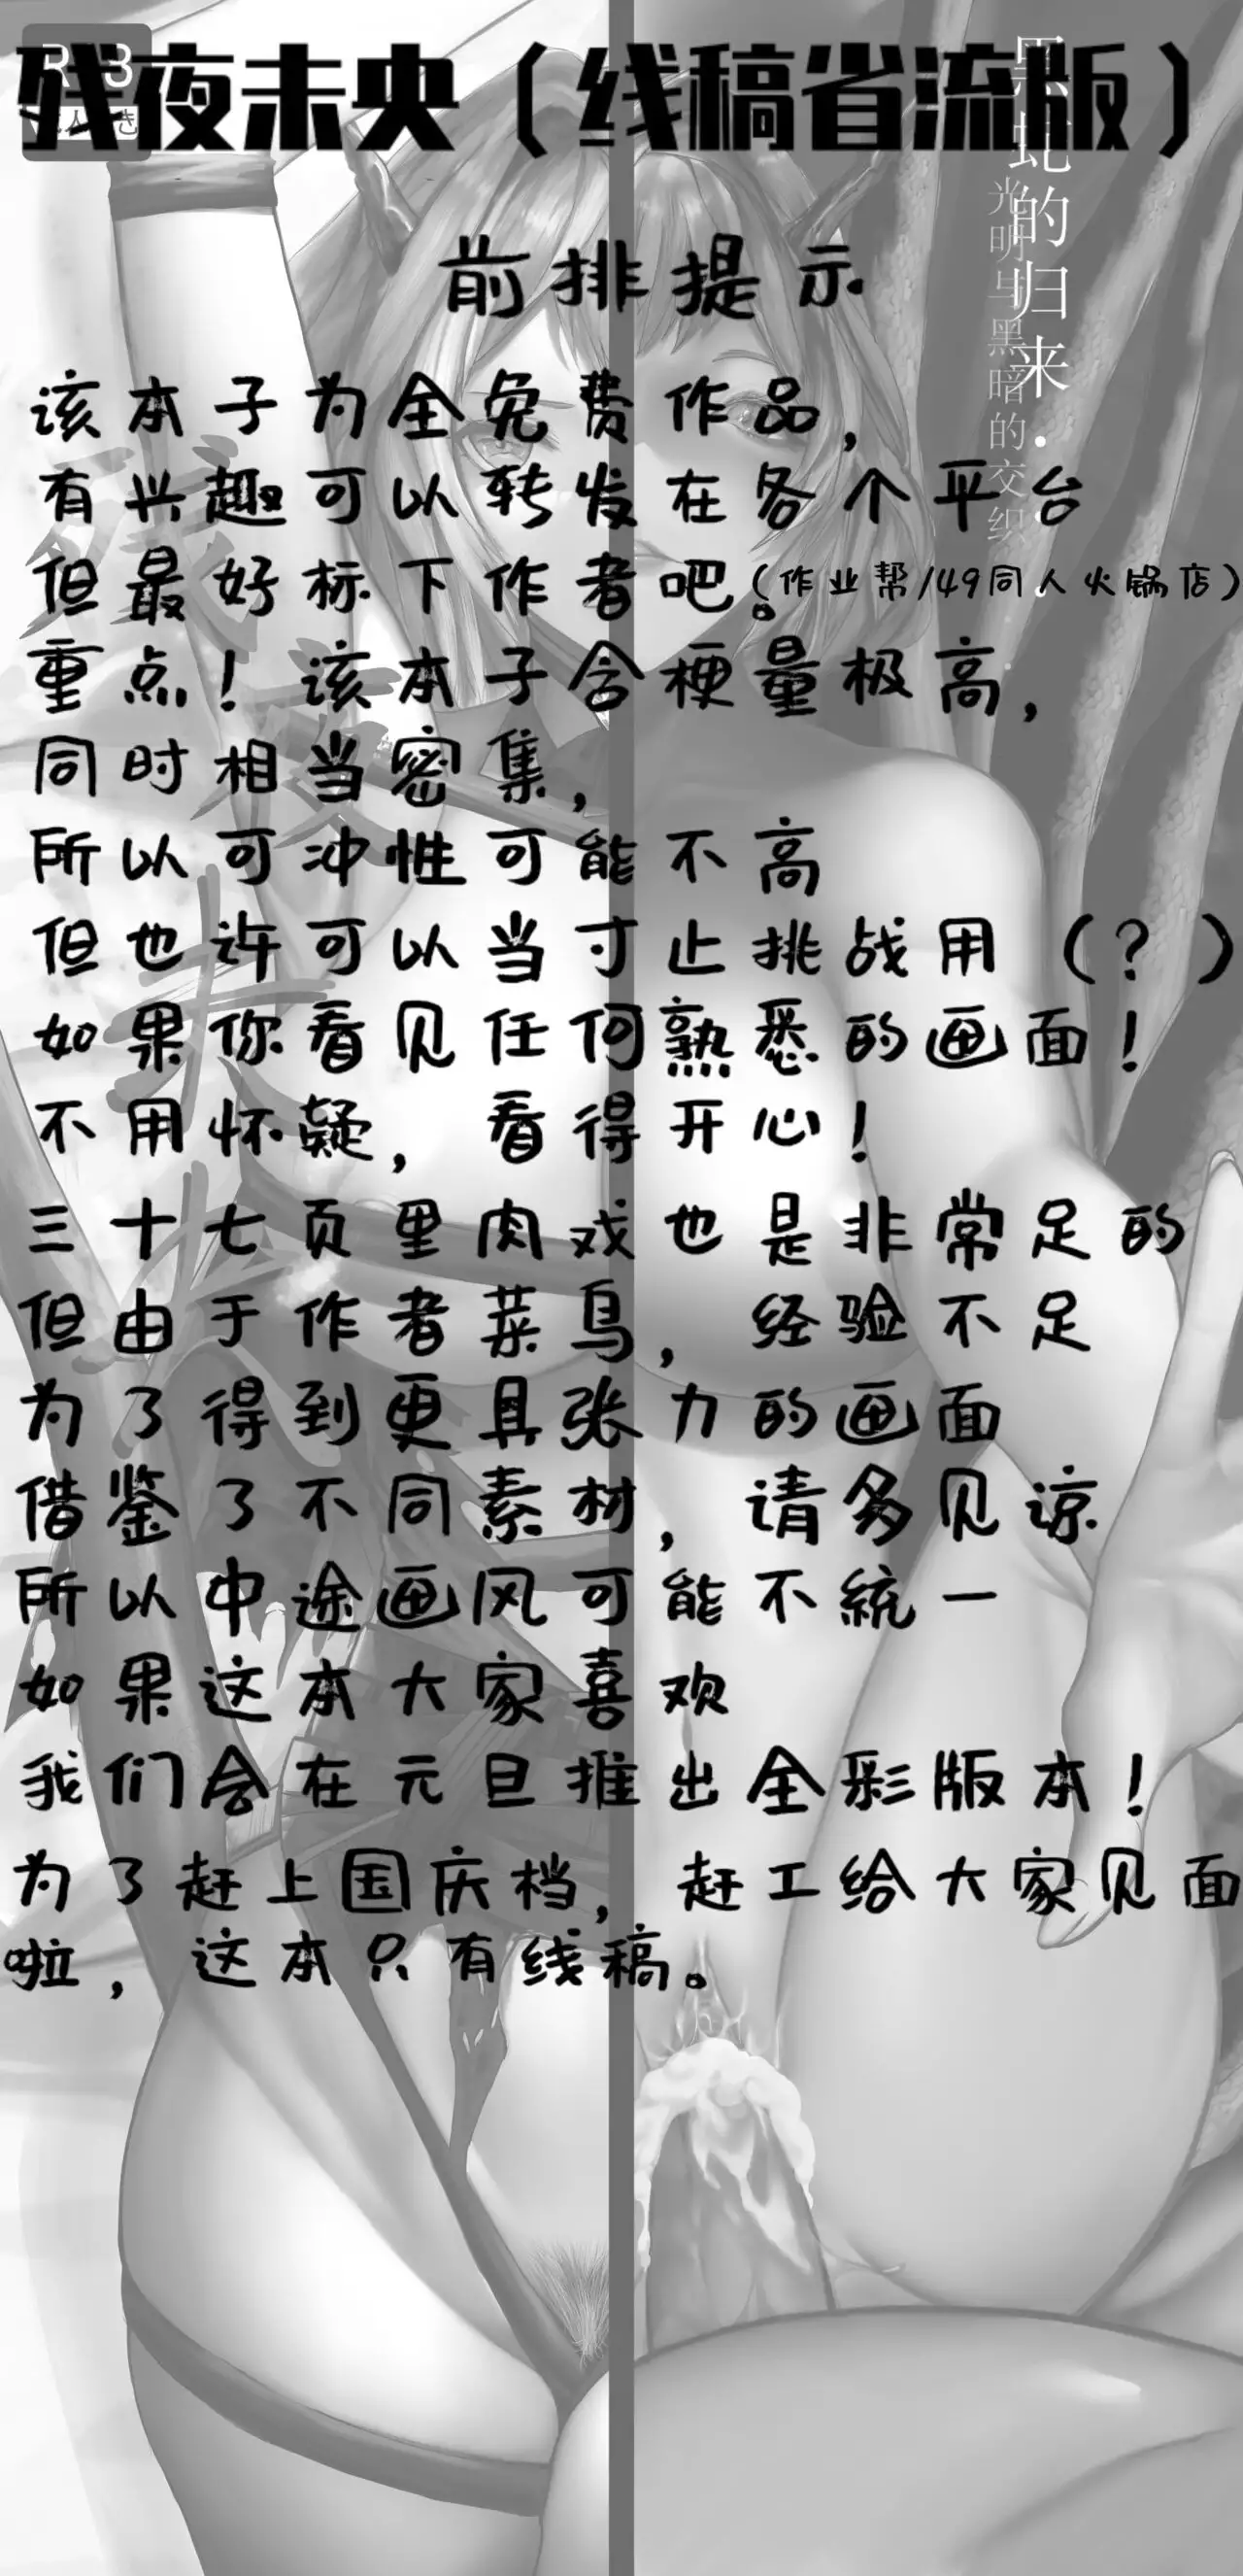 残夜未央（线稿省流版）
前排提示
该本子为全免费作品，
有兴趣可以转发在各个平台
但最好标下作者吧。（作业帮/49同人火锅店）
重点！该本子含梗量极高，
同时相当密集，
所以可冲性可能不高
但也许可以当寸止挑战用（？）
如果你看见任何熟悉的画面！
不用怀疑，看得开心！
三十七页里肉戏也是非常足的
但由于作者菜鸟，经验不足
为了得到更具张力的画面
借鉴了不同素材，请多见谅
所以中途画风可能不統一
如果这本大家喜欢
我们会在元旦推出全彩版本！
为了赶上国庆档，赶工给大家见面
啦，这本只有线稿。
的归来·
光明与黑暗的交织